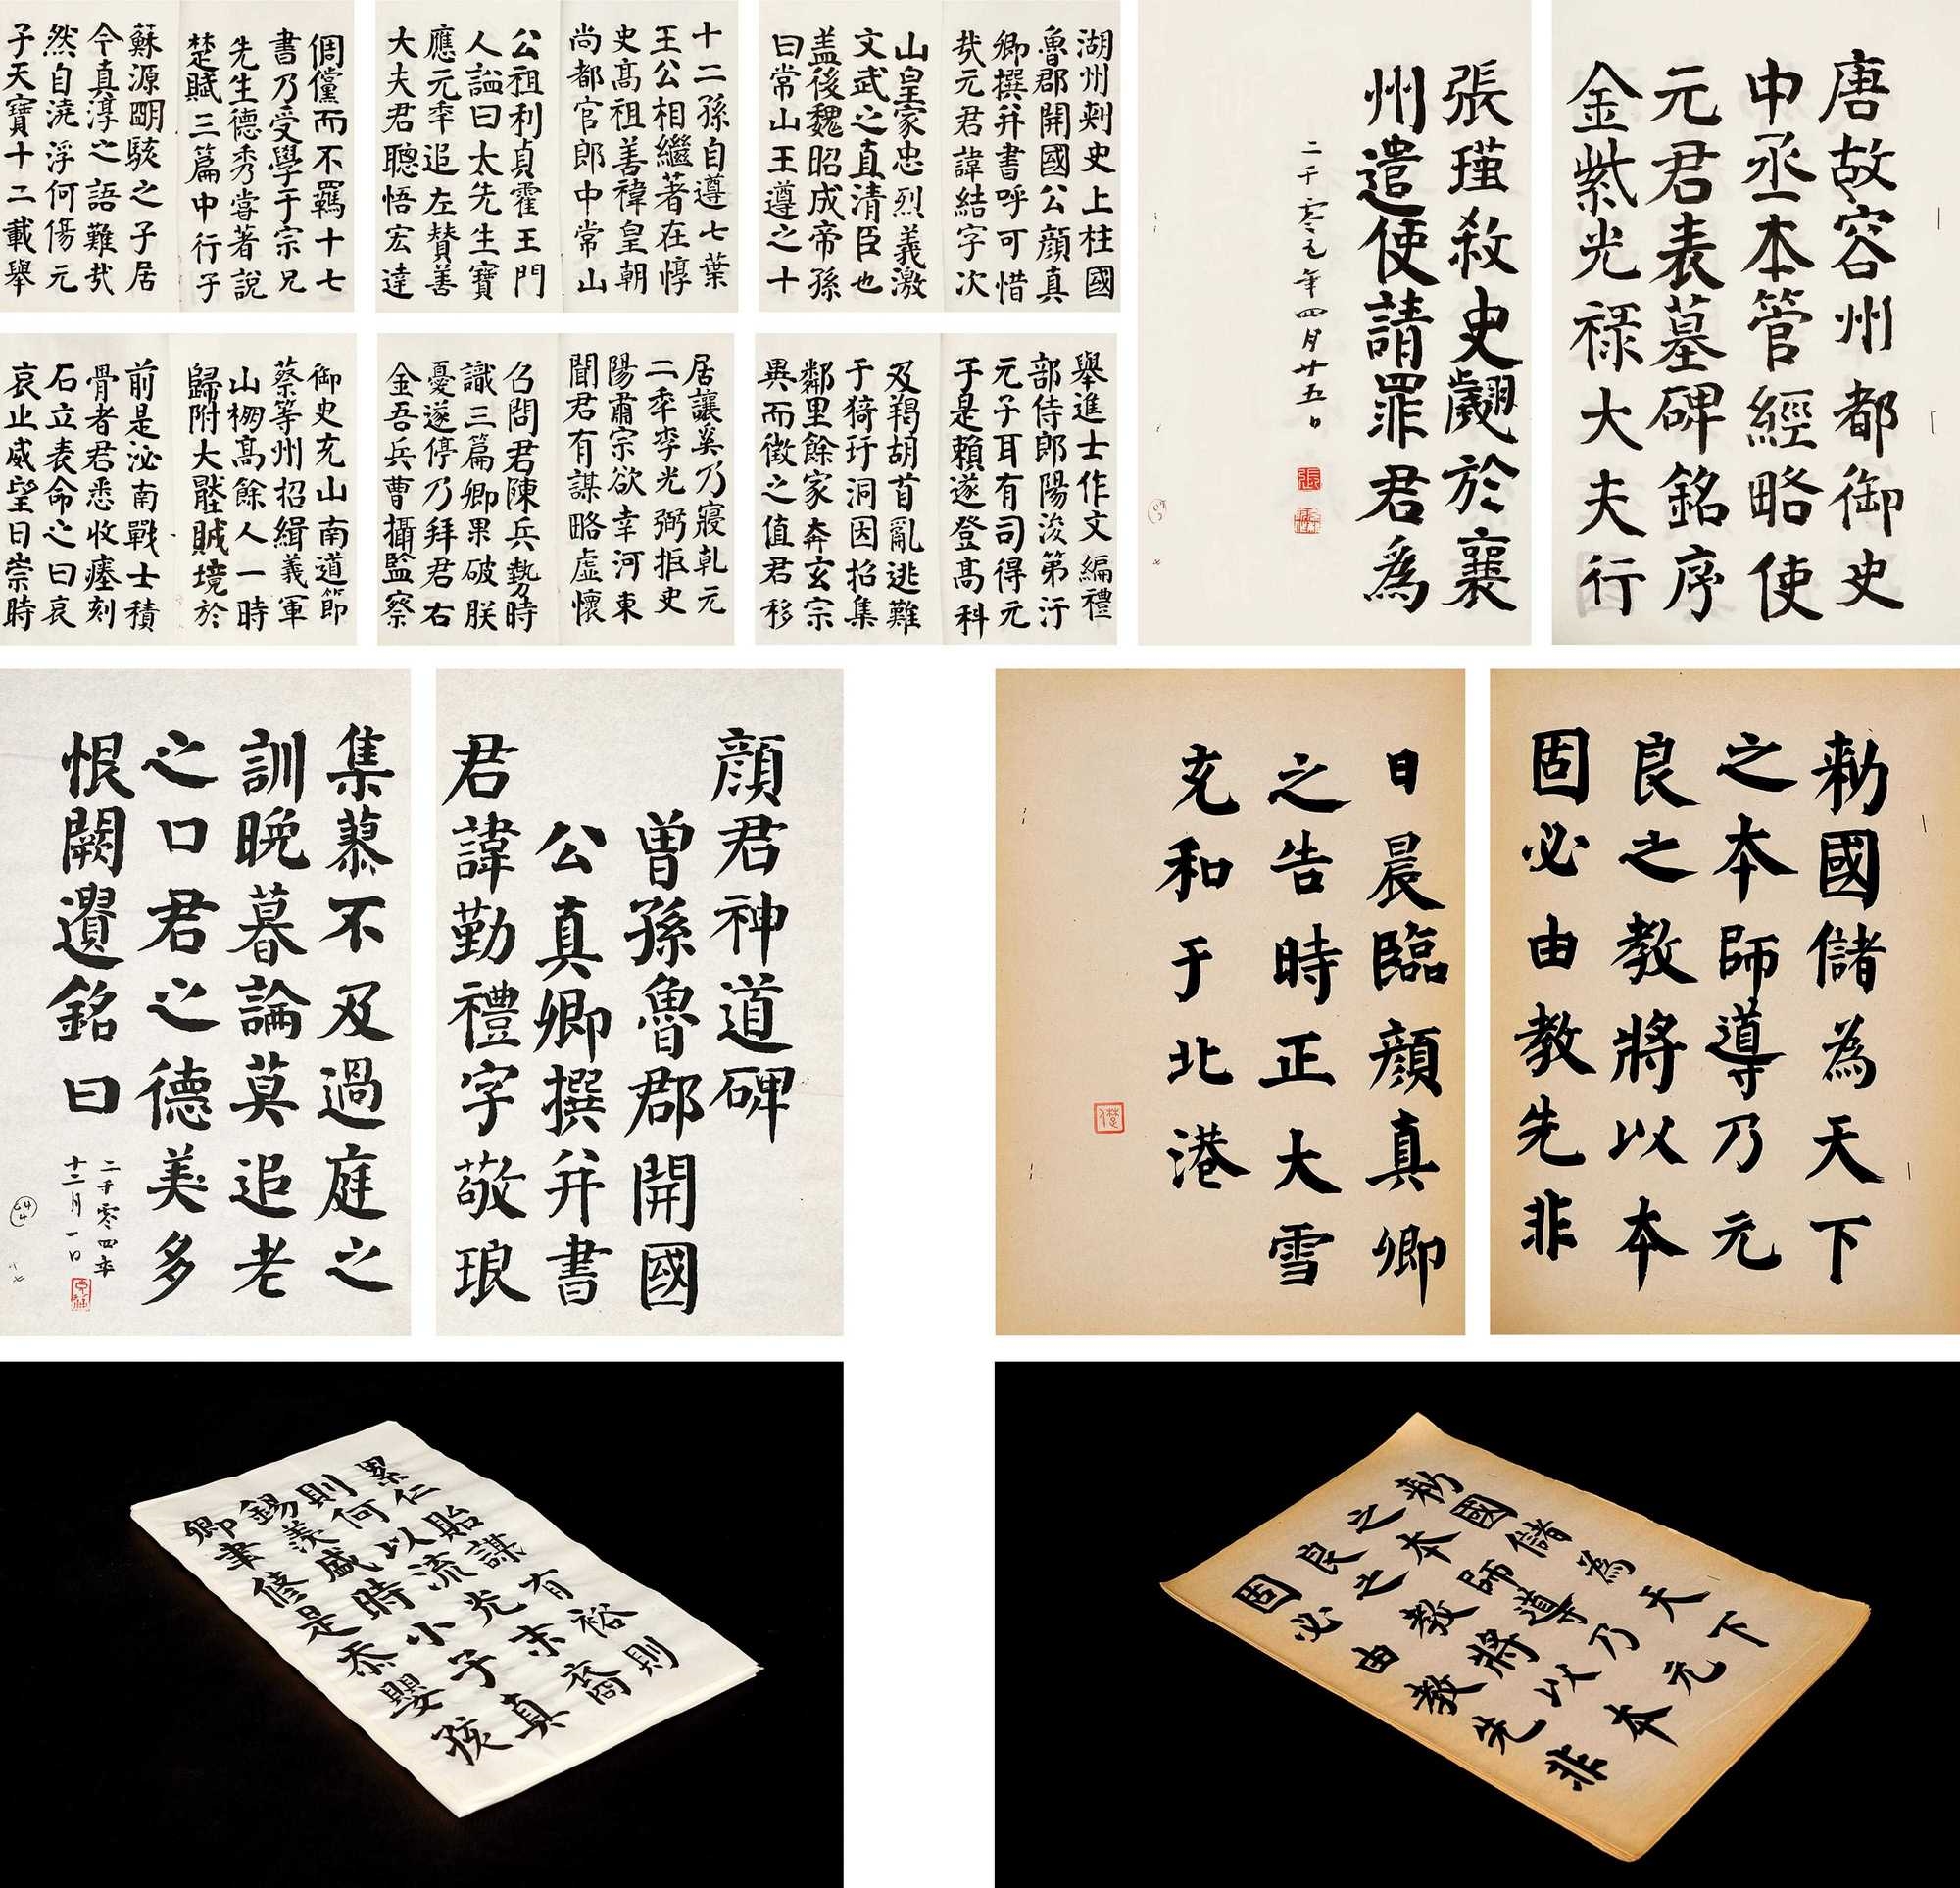 唐故容州都御史
中丞本管經略使
元君表墓碑銘序
金紫光祿大夫行
張瑾殺史翽於襄
州遣使請罪君為
二千零五年四月廿五日
湖州刺史上柱國
魯郡開國公顏真
卿撰并書呼可惜
哉元君諱結字次
山皇家忠烈義激
文武之直清臣也
盖後魏昭成帝孫
曰常山王遵之十
十二孫自遵七葉
王公相繼著在惇
史高祖善禕皇朝
尚都官郎中常山
公祖利貞霍王門
人謚曰太先生寶
應元年追左贊善
大夫君聰悟宏達
倜儻而不羈十七
書乃受學于宗兄
先生德秀嘗著說
楚賦三篇中行子
蘇源明駭之子居
今真淳之語難哉
然自澆浮何傷元
子天寶十二載舉
舉進士作文編禮
部侍郎陽浚第汙
元子耳有司得元
子是賴遂登高科
及羯胡首亂逃難
于猗玗洞因招集
鄰里餘家奔玄宗
異而徵之值君移
居讓奚乃寢乾元
二年李光弼拒史
陽肅宗欲幸河東
聞君有謀略虛懷
召問君陳兵勢時
識三篇卿果破朕
憂遂停乃拜君右
金吾兵曹攝監察
御史充山南道節
蔡等州招緝義軍
山棚高餘人一時
歸附大壓賊境於
前是泌南戰士積
骨者君悉收瘞刻
石立表命之曰哀
哀止威望日崇時
顏君神道碑
曾孫魯郡開國
公真卿撰并書
君諱勤禮字敬琅
集慕不及過庭之
訓晚暮論莫追老
之口君之德美多
恨闕遺銘曰
二千零四年
十二月一日
敕國儲為天下
之本師導乃元
良之教將以本
固必由教先非
日晨臨顏真卿
之告時正大雪
充和于北港
累仁貽謀有裕則
則何以流光末裔
錫羨盛時小子真
卿聿修是忝嬰孩
敕國儲為天下
之本師導乃元
良之教將以本
固必由教先非